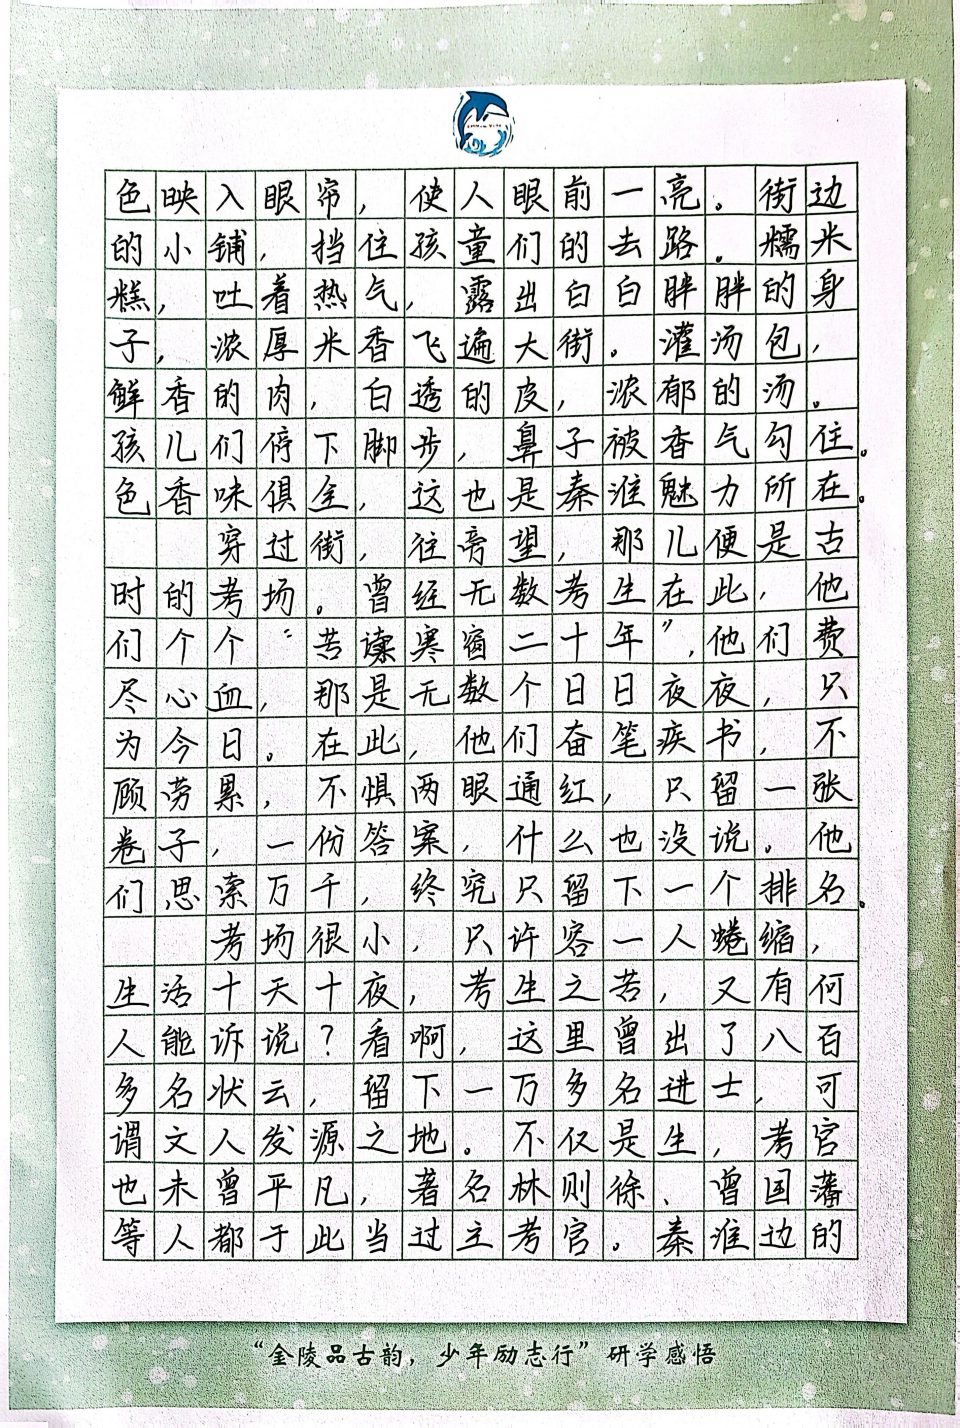 色映入眼帘，使人眼前一亮。街边
的小铺，挡住孩童们的去路。糯米
糕，吐着热气，露出白白胖胖的身
子，浓厚米香飞遍大街。灌汤包，
鲜香的肉，白透的皮，浓郁的汤。
孩儿们停下脚步，鼻子被香气勾住。
色香味俱全，这也是秦淮魅力所在。
穿过街，往旁望，那儿便是古
时的考场。曾经无数考生在此，他
们个个“苦读寒窗二十年”，他们费
尽心血，那是无数个日日夜夜，只
为今日。在此，他们奋笔疾书，不
顾劳累，不惧两眼通红，只留一张
卷子，一份答案，什么也没说。他
们思索万千，终究只留下一个排名。
考场很小，只许容一人蜷缩，
生活十天十夜，考生之苦，又有何
人能诉说？看啊，这里曾出了八百
多名状云，留下一万多名进士，可
谓文人发源之地。不仅是生，考官
也未曾平凡，著名林则徐、曾国藩
等人都于此当过主考官。秦淮边的
“金陵品古韵，少年励志行”研学感悟